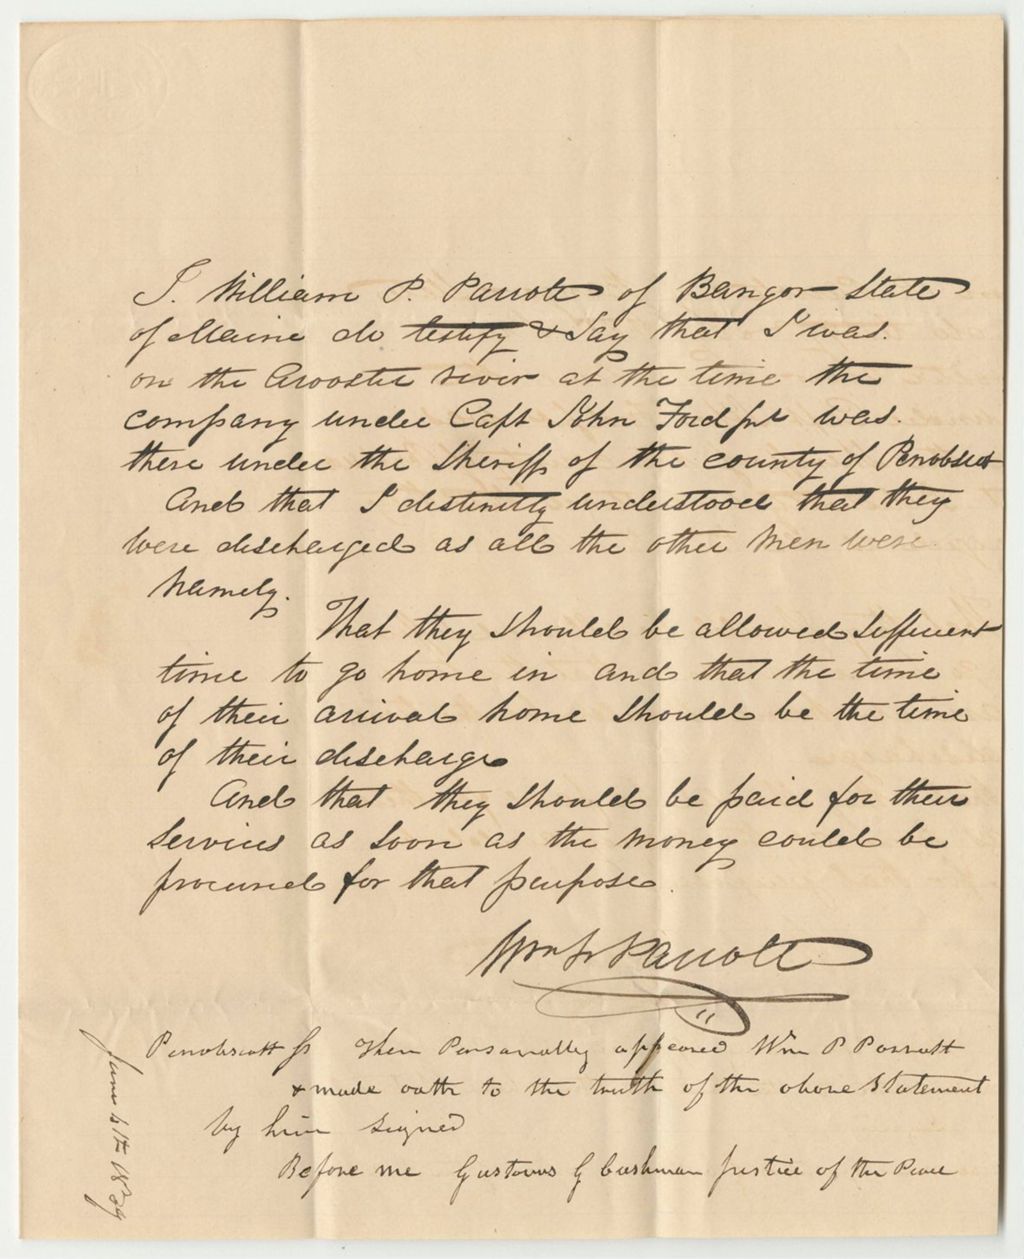 I. William P. Parrott of Bangor State
of Maine do testify & Say that I was.
on the Aroostic river at the time the
company under Capt John Ford jr was.
there under the Sheriff of the county of Penobscot
And that I distinctly understood that they
were discharged as all the other men were.
namely.
That they should be allowed sufficient
time to go home in and that the time
of their arrival home should be the time
of their discharge
And that they should be paid for their
Services as soon as the money could be
procured for that purpose.
Wm P Parrott
Penobscott ss Then Personally appeared Wm P Parrott
& made oath to the truth of the above Statement
by him signed
Before me Gustavus G Cushman Justice of the Peace
June 4th 1839